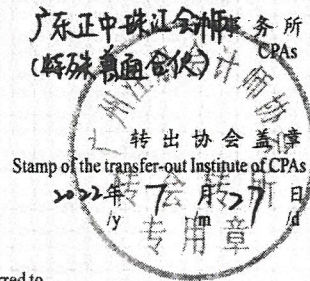 广东正中珠江会计师事务所
CPAs
(特殊普通合伙)
广州注册会计师协会
转出协会盖章
Stamp of the transfer-out Institute of CPAs
2022年 7 月 27 日
/y /m /d
转会转所
专用章